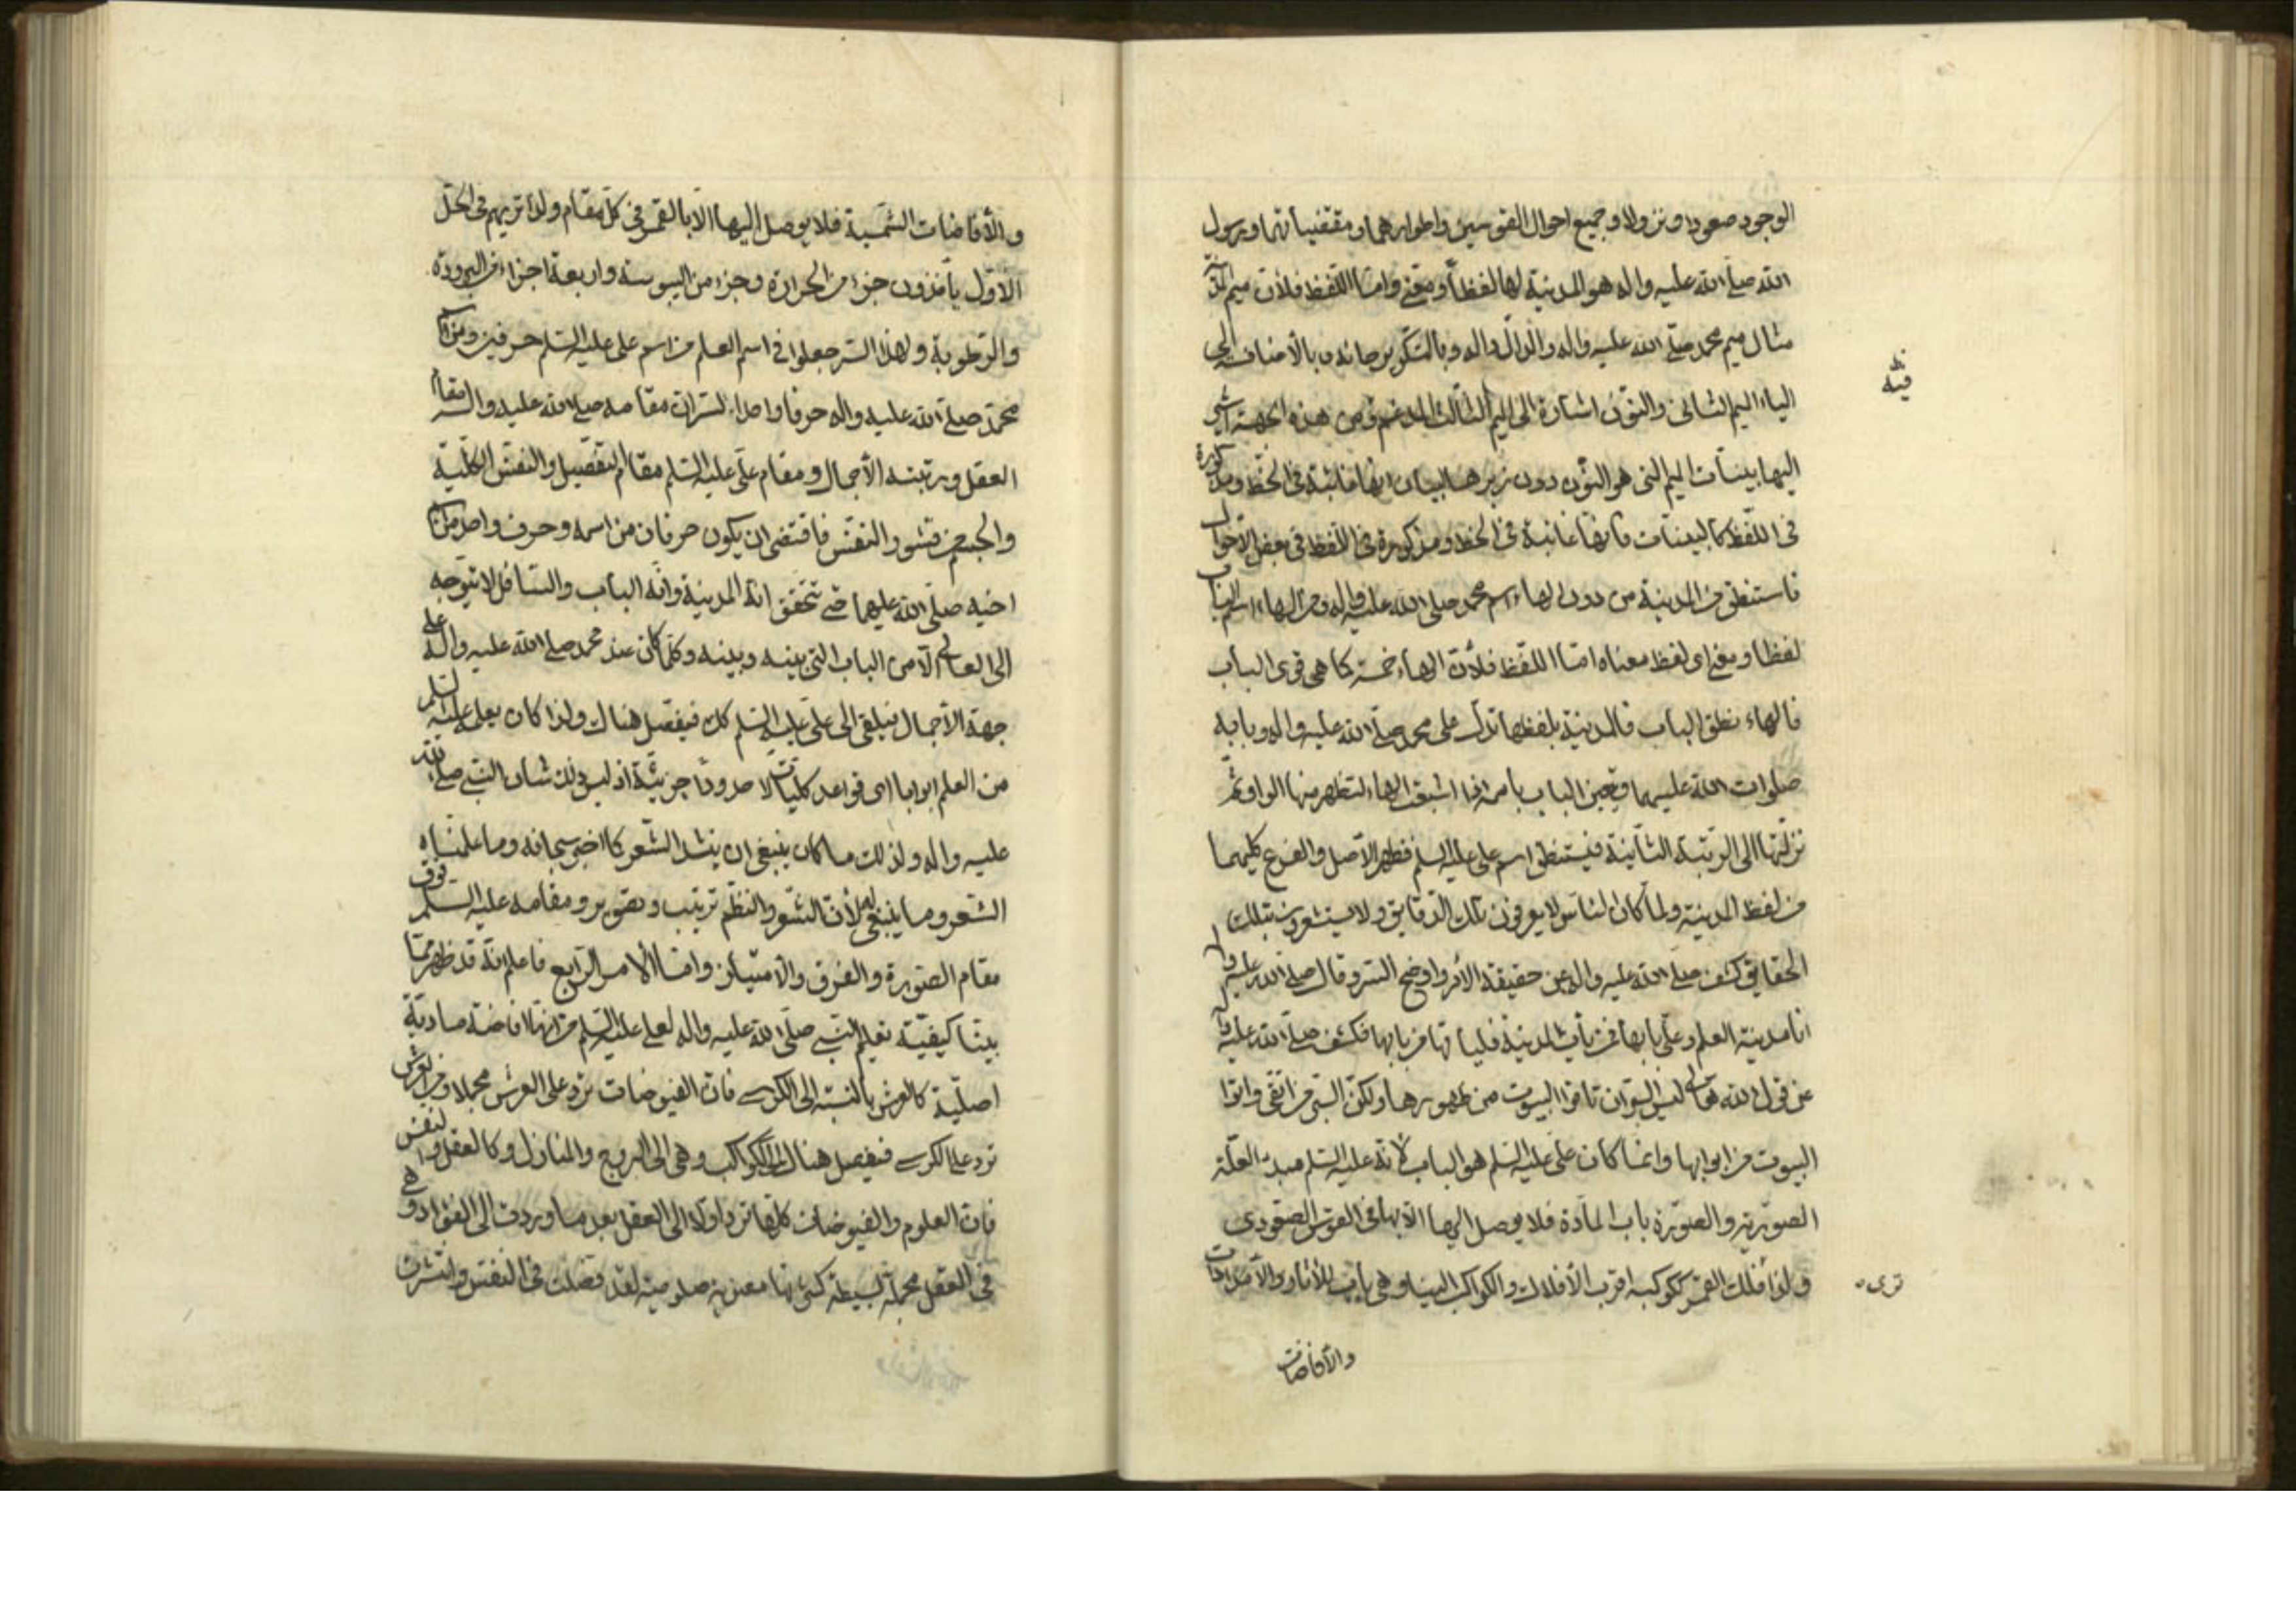 الوجود صعودا ونزولا وجميع احوال القوسين واطوارهما ومقتضياتهما ورسول
الله صلى الله عليه واله هو المدينة لها لفظاً ومعنى وامّا اللفظ فلأن ميم المدينة
مثال ميم محمد صلى الله عليه واله والدّال داله وبالتكرير حائه وبالأضافة الى
الياء الميم الثانى والنّون اشارة الى الميم الثالث المدغم فيه ومن هذه الجهة اشير
اليها ببينات الميم التى هو النّون دون زبرها لبيان انها غائبة فى الخط ومذكورة
فى اللّفظ كالبينات فانها غائبة فى الخط ومذكورة فى اللفظ فى بعض الاحوال
فاستنطق من المدينة من دون الهاء اسم محمد صلى الله عليه واله ومن الهاء اسم الباب
لفظا ومعنى اى لفظ معناه امّا اللّفظ فلأن الهاء خمسة كما هى قوى الباب
فالهاء نطق الباب فالمدينة بلفظها تدل على محمد صلى الله عليه واله وبابه
صلوات الله عليهما وتعين الباب باسمه اذا اشبعت الهاء لتظهر منها الواو ثم
نزلتها الى الرّتبة الثانية فيستنطق اسم على عليه السلم فظهر الأصل والفرع كليهما
من لفظ المدينة ولمّا كان النّاس لا يعرفون تلك الدقايق ولا يستشعرون بتلك
الحقايق كشف صلى الله عليه واله عن حقيقة الأمر واوضح السر وقال صلى الله عليه واله
انا مدينة العلم وعلى بابها فمن يأت المدينة فليأتها من بابها فكشف صلى الله عليه واله
عن قول الله تعالى ليس البر بان تاتوا البيوت من ظهورها ولكن البر من اتقى واتوا
البيوت من ابوابها وانما كان على عليه السلم هو الباب لأنه عليه السلم مبدء العلّة
الصّوريّة والصّورة باب المادّة فلا يوصل اليها الا بها فى القوس الصعودى
ولذا فلك القمر ككوكبه اقرب الأفلاك والكواكب الينا وهى باب للأنار والأمدادات
ترى
والأفاضات
والأفاضات الشّمسية فلا يوصل اليها الا بالقمر فى كل مقام ولذا تريهم فى الحل
الأوّل يأخذون جزء من الحرارة وجزء من اليبوسة واربعة اجزاء من البرودة
والرّطوبة ولهذا السّر جعلوا فى اسم العلم من اسم على عليه السّلم حرفين ومن اسم
محمّد صلى الله عليه واله حرفا واحداً لسّر ان مقامه صلى الله عليه واله مقام
العقل ورتبته الأجمال ومقام على عليه السّلم مقام التفصيل والنفس الكلّية
احيه صلى الله عليهما حتى تحقق انّه المدينة وانّه الباب والسّافل لا يتوجه
الى العالى الّا من الباب التى بينه وبينه وكلما كان عند محمد صلى الله عليه واله على
جهة الأجمال فيلقى الى على عليه السّلم كل فيفصّل هناك ولذا كان يعلم عليه السلم
من العلم ابوابا اى قواعد كليات لا حدودا جزئيّة اذ ليس ذلك شان النبى صلى الله
عليه واله ولذلك ما كان ينبغى ان ينشد الشّعر كما اخبر سبحانه وما علمناه
الشّعر وما ينبغى له لأن الشّعر والنظم ترتيب وتصوير ومقامه عليه السلم فوق
مقام الصّورة والفرق والأمتياز وامّا الأمر الرّابع فاعلم انّه قد ظهر ممّا
بينّا كيفيّة تعليم النّبى صلّى الله عليه واله لعلى عليه السّلم من انها افاضة مبادية
اصليّة كالعرش بالنسبة الى الكرسى فان الفيوضات ترد على العرش مجملا ومن العرش
ترد على الكرسى فيفصل هناك الى الكواكب وهى الى البروج والمنازل وكالعقل والنفس
فان العلوم والفيوضات كلها ترد اولا الى العقل بعد ما وردت الى الفؤاد وهى
فى العقل مجملة بسيطة فصّلت فى النفس وانتشرت